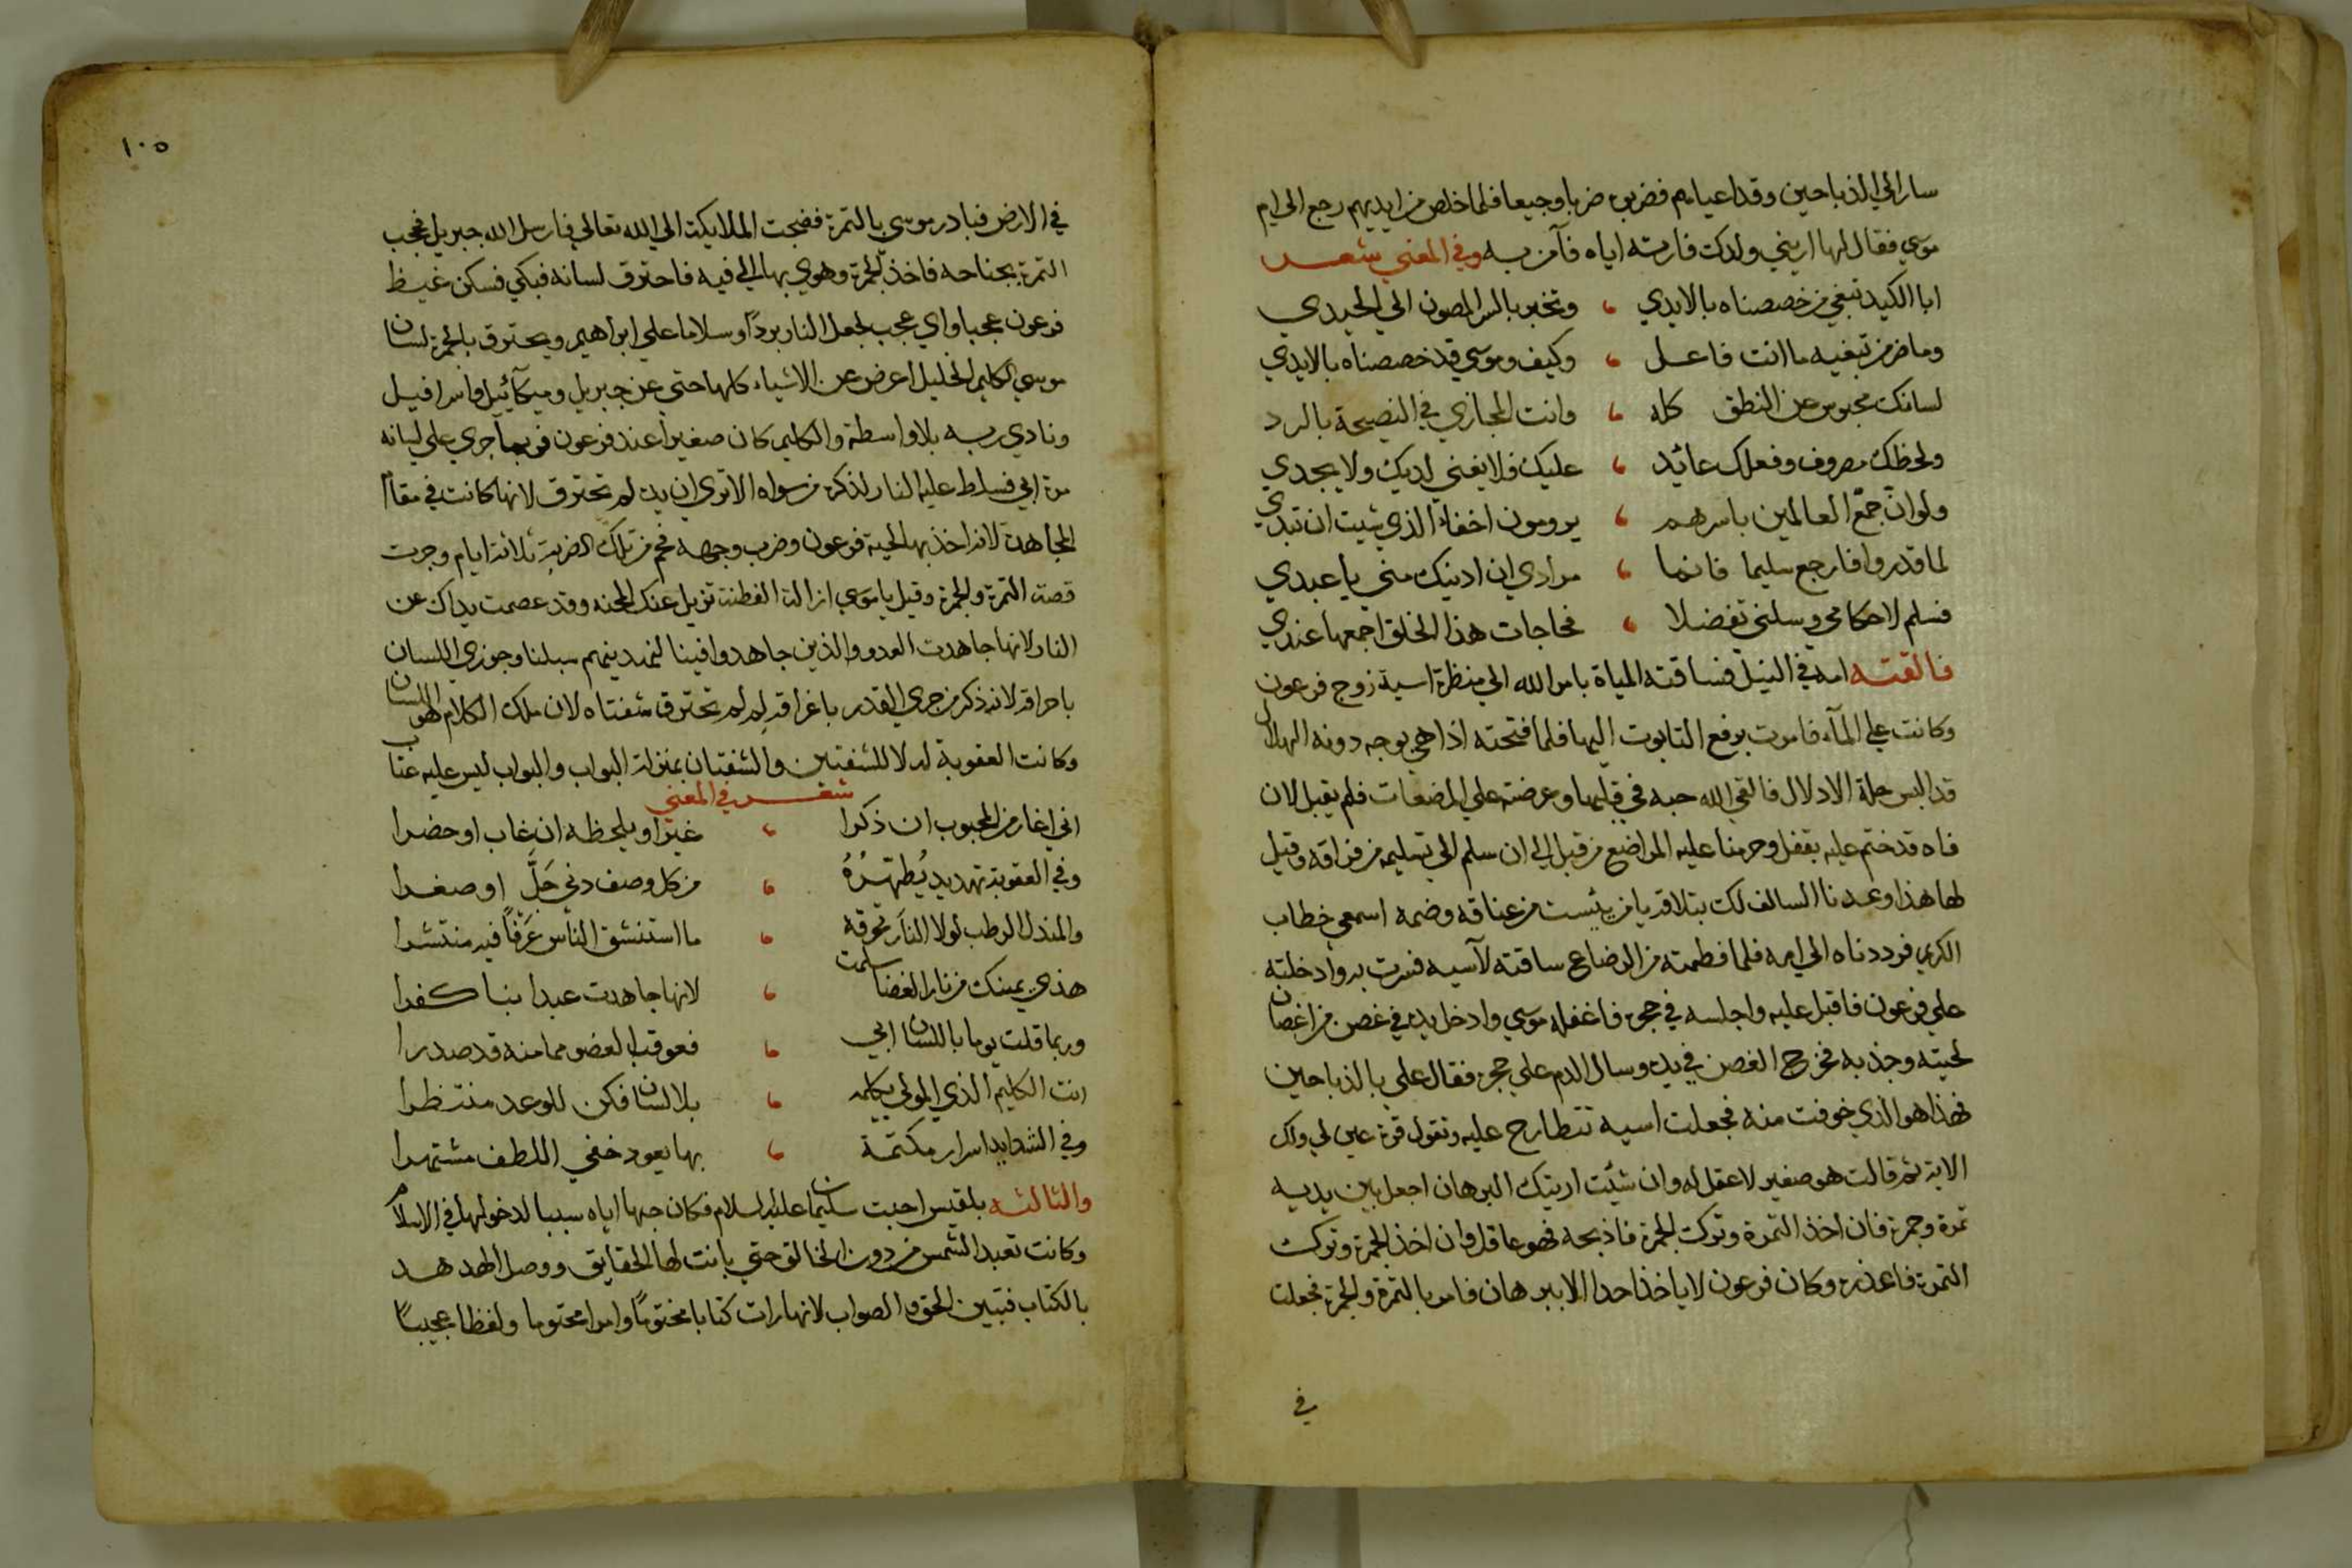 سار الي الذباحين وقد اعياهم فضربوه ضربا وجيعا فلما خلص من ايديهم رجع الي ام
موسي فقال لها اريني ولدك فارته اياه فآمن به وفي المعني شعر
ابا الكيد تبغي من خصصناه بالايدي وتخبر بالسر المصون الي الحيدي
وما ضر من تبغيه ما انت فاعل وكيف وموسي قد خصصناه بالايدي
لسانك محبوس عن النطق كله وانت المجازي في النصيحة بالرد
ولحظك مصروف وفعلك عائد عليك فلا يغني لديك ولا يجدي
ولو ان جمع العالمين باسرهم يرومون اخفاء الذي شيت ان تبدي
لما قدروا فارجع سليما فانما مرادي ان ادنيك مني يا عبدي
فسلم لاحكامي وسلني تفضلا فحاجات هذا الخلق اجمعها عندي
فالقته امه في النيل فساقته المياة بامر الله الي منظرة اسية زوج فرعون
وكانت علي المآء فامرت برفع التابوت اليها فلما فتحته اذا هي بوجه دونه الهلال
قد البس حلة الادلال فالقي الله حبه في قلبها وعرضته علي المرضعات فلم يقبل لان
فاه قد ختم عليه بقفل وحرمنا عليه المراضع من قبل الي ان سلم الي تسليمه من فراقه وقيل
لها هذا وعدنا السالف لك بتلاقه يا من يئست من عناقه وضمه اسمعي خطاب
الكريم فرددناه الي امه فلما فطمته من الرضاع ساقته لآسيه فسرت به وادخلته
علي فرعون فاقبل عليه واجلسه في حجره فاغفله موسي وادخل يده في غصن من اغصان
لحيته وجذبه فخرج الغصن في يده وسال الدم علي حجره فقال علي بالذباحين
فهذا هو الذي خوفت منه فجعلت اسية تتطارح عليه وتقول قرة عين لي ولك
الاية ثم قالت هو صغير لا عقل له وان شئت اريتك البرهان اجعل بين يديه
تمرة وجمرة فان اخذ التمرة وترك الجمرة فاذبحه فهو عاقل وان اخذ الجمرة وترك
التمرة فاعذره وكان فرعون لا ياخذ احدا الا ببرهان فامر بالتمرة والجمرة فجعلت
في
١٠٥
في الارض فبادر موسي بالتمرة فضجت الملايكة الي الله تعالي فارسل الله جبريل فحجب
التمرة بجناحه فاخذ الجمرة وهوي بها الي فيه فاحترق لسانه فبكي فسكن غيظ
فرعون عجبا واي عجب لجعل النار بردًا وسلاما علي ابراهيم ويحترق بالجمرة لسان
موسي الكليم الخليل اعرض عن الاشياء كلها حتي عن جبريل وميكآئيل واسرافيل
ونادي ربه بلا واسطة والكليم كان صغيرا عند فرعون فربما جري علي لسانه
مرة ابي فسلط عليه النار لذكره من سواه الا تري ان يده لم تحترق لانها كانت في مقام
المجاهدة لانه اخذ بها لحية فرعون وضرب وجهه فحم من تلك الضربة ثلاثة ايام وجرت
قصة التمرة والجمرة وقيل يا موسي ازالة الفطنة تزيل عنك المحنه وقد عصمت يداك عن
النار لانها جاهدت العدو والذين جاهدوا فينا لنهدينهم سبلنا وجوزي اللسان
باحراقه لانه ذكر من جري القدر باغراقه لِم لم تحترق شفتاه لان ملك الكلام هو اللسان
وكانت العقوبة له لا للشفتين والشفتان بمنزلة البواب والبواب ليس عليه عتاب
شعر في المعني
اني اغار من المحبوب ان ذكرا غيرا ويلحظه ان غاب او حضرا
وفي العقوبة تهديد يُطهّرُهُ من كل وصف دني جَلَّ او صغرا
والمندل الرطب لولا النار تحرقه ما استنشق الناس عَرْفاً فيه منتشرا
هذي يمينك من نار الغضا سلمت لانها جاهدت عبدا بنا كفرا
وربما قلت يوما باللسان ابي فعوقب العضو مما منه قد صدرا
انت الكليم الذي المولي يكلمه بلا لسان فكن للوعد منتظرا
وفي الشدايد اسرار مكتمة بها يعود خفي اللطف مشتهرا
والثالثه بلقيس احبت سليمان عليه السلام فكان حبها اياه سببا لدخولها في الاسلام
وكانت تعبد الشمس من دون الخالق حتي بانت لها الحقايق ووصل الهدهد
بالكتاب فتبين الحق والصواب لانها رات كتابا مختومًا وامرا محتوما ولفظا عجيبًا